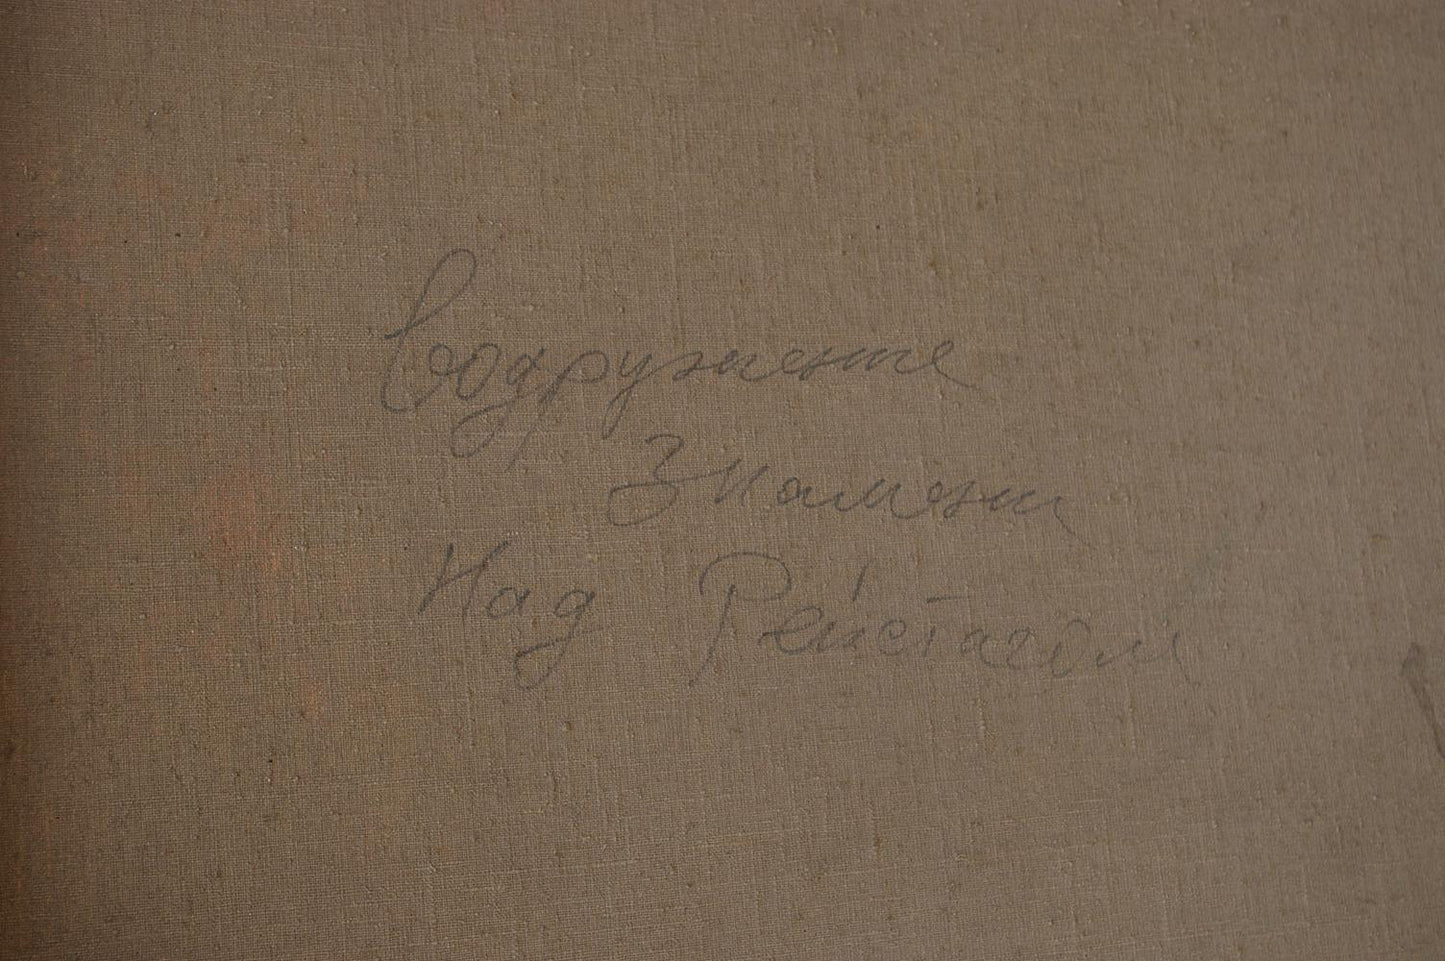 Водружение
Знамени
Над Рейстагом